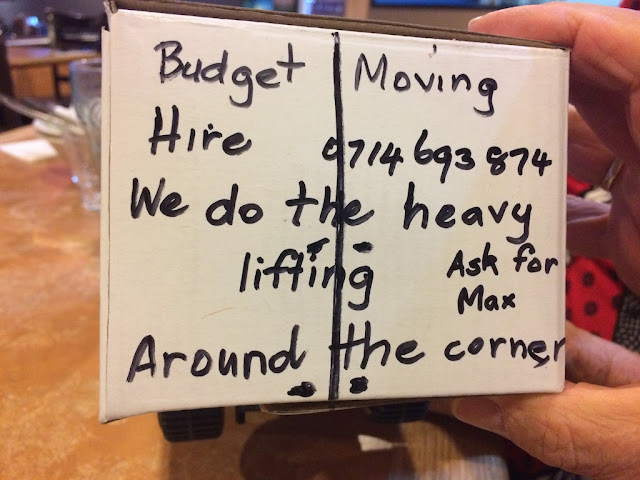 Budget Moving
Hire 0714 693 874
We do the heavy
lifting Ask for
Max
Around the corner